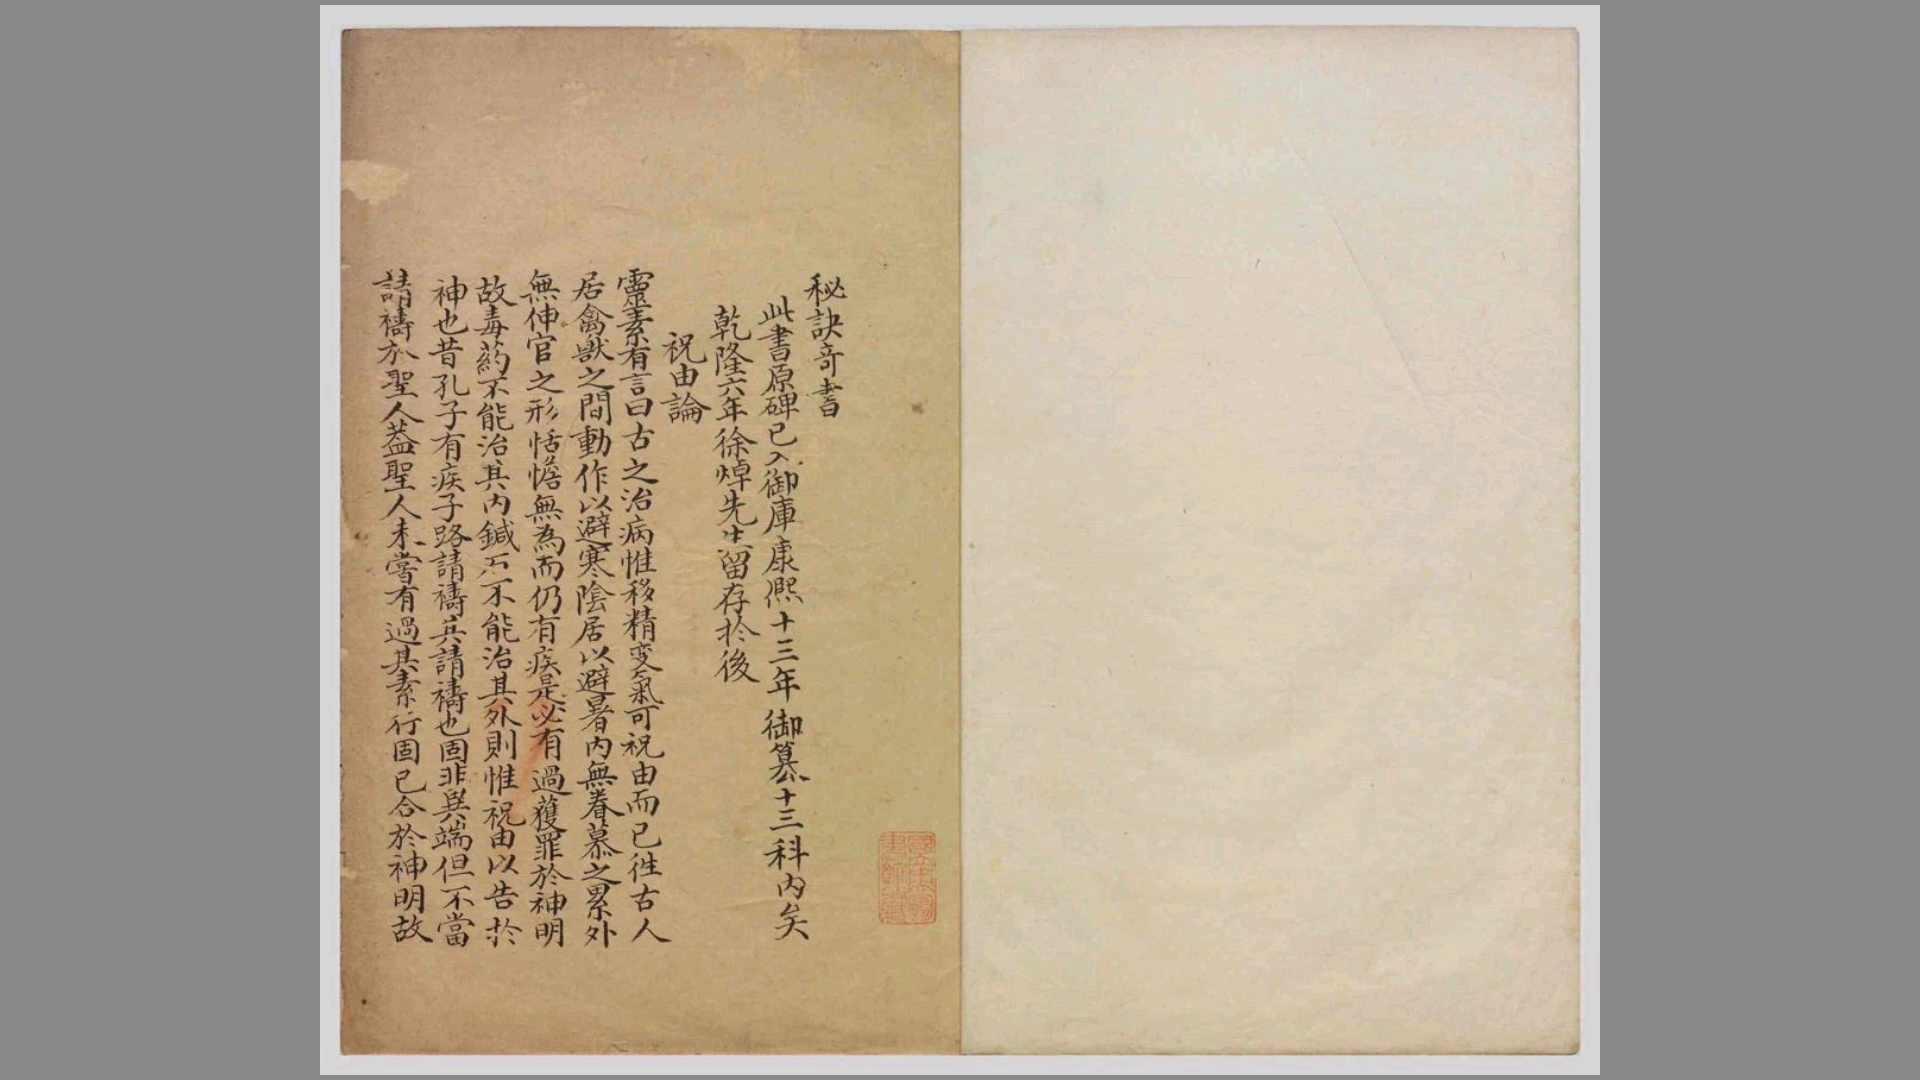 秘訣奇書
此書原碑已入御庫康熙十三年御篡十三科內矣
乾隆六年徐焯先生留存於後
祝由論
靈素有言曰古之治病惟移精变氣可祝由而已徃古人
居禽獸之間動作以避寒陰居以避暑内無眷慕之累外
無伸官之形恬憺無為而仍有疾是必有過獲罪於神明
故毒药不能治其内鍼石不能治其外則惟祝由以告於
神也昔孔子有疾子路請禱其請禱也固非異端但不當
請禱於聖人葢聖人未嘗有過其素行固已合於神明故